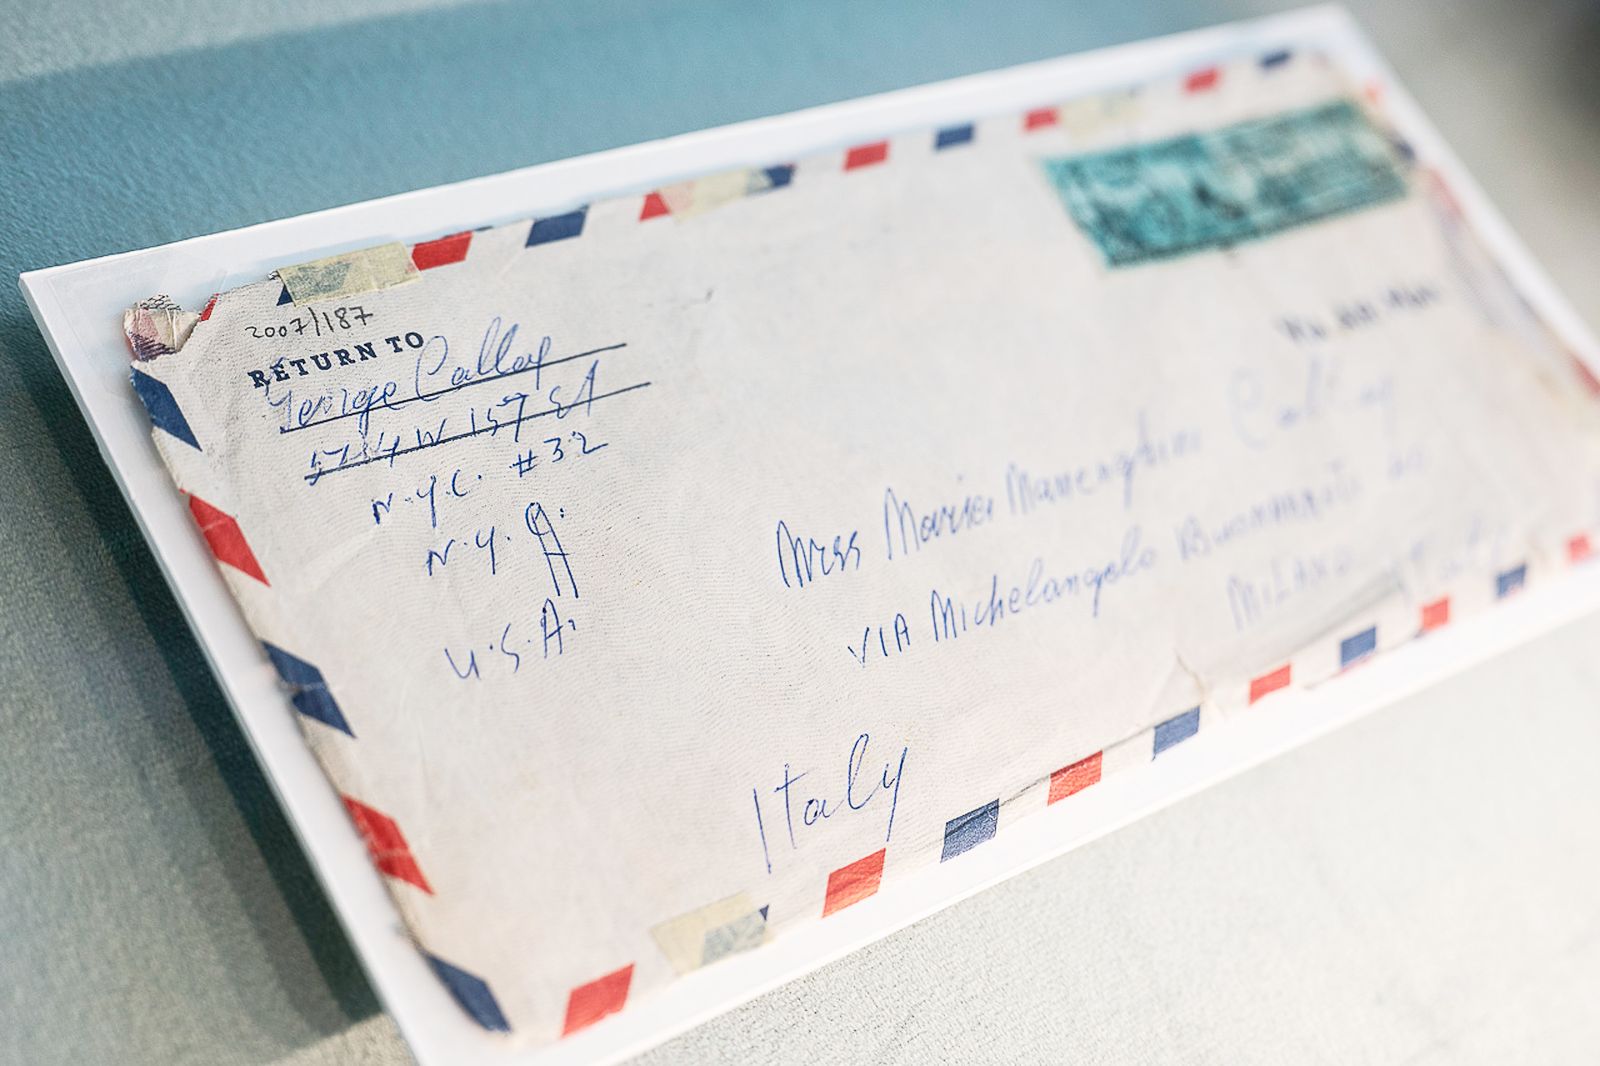 2007/187
RETURN TO
George Callas
W 157 St
N.Y.C. #32
N.Y.
U.S.A.
Miss Maria Meneghini Callas
VIA Michelangelo Buonarroti
MILANO Italy
Italy